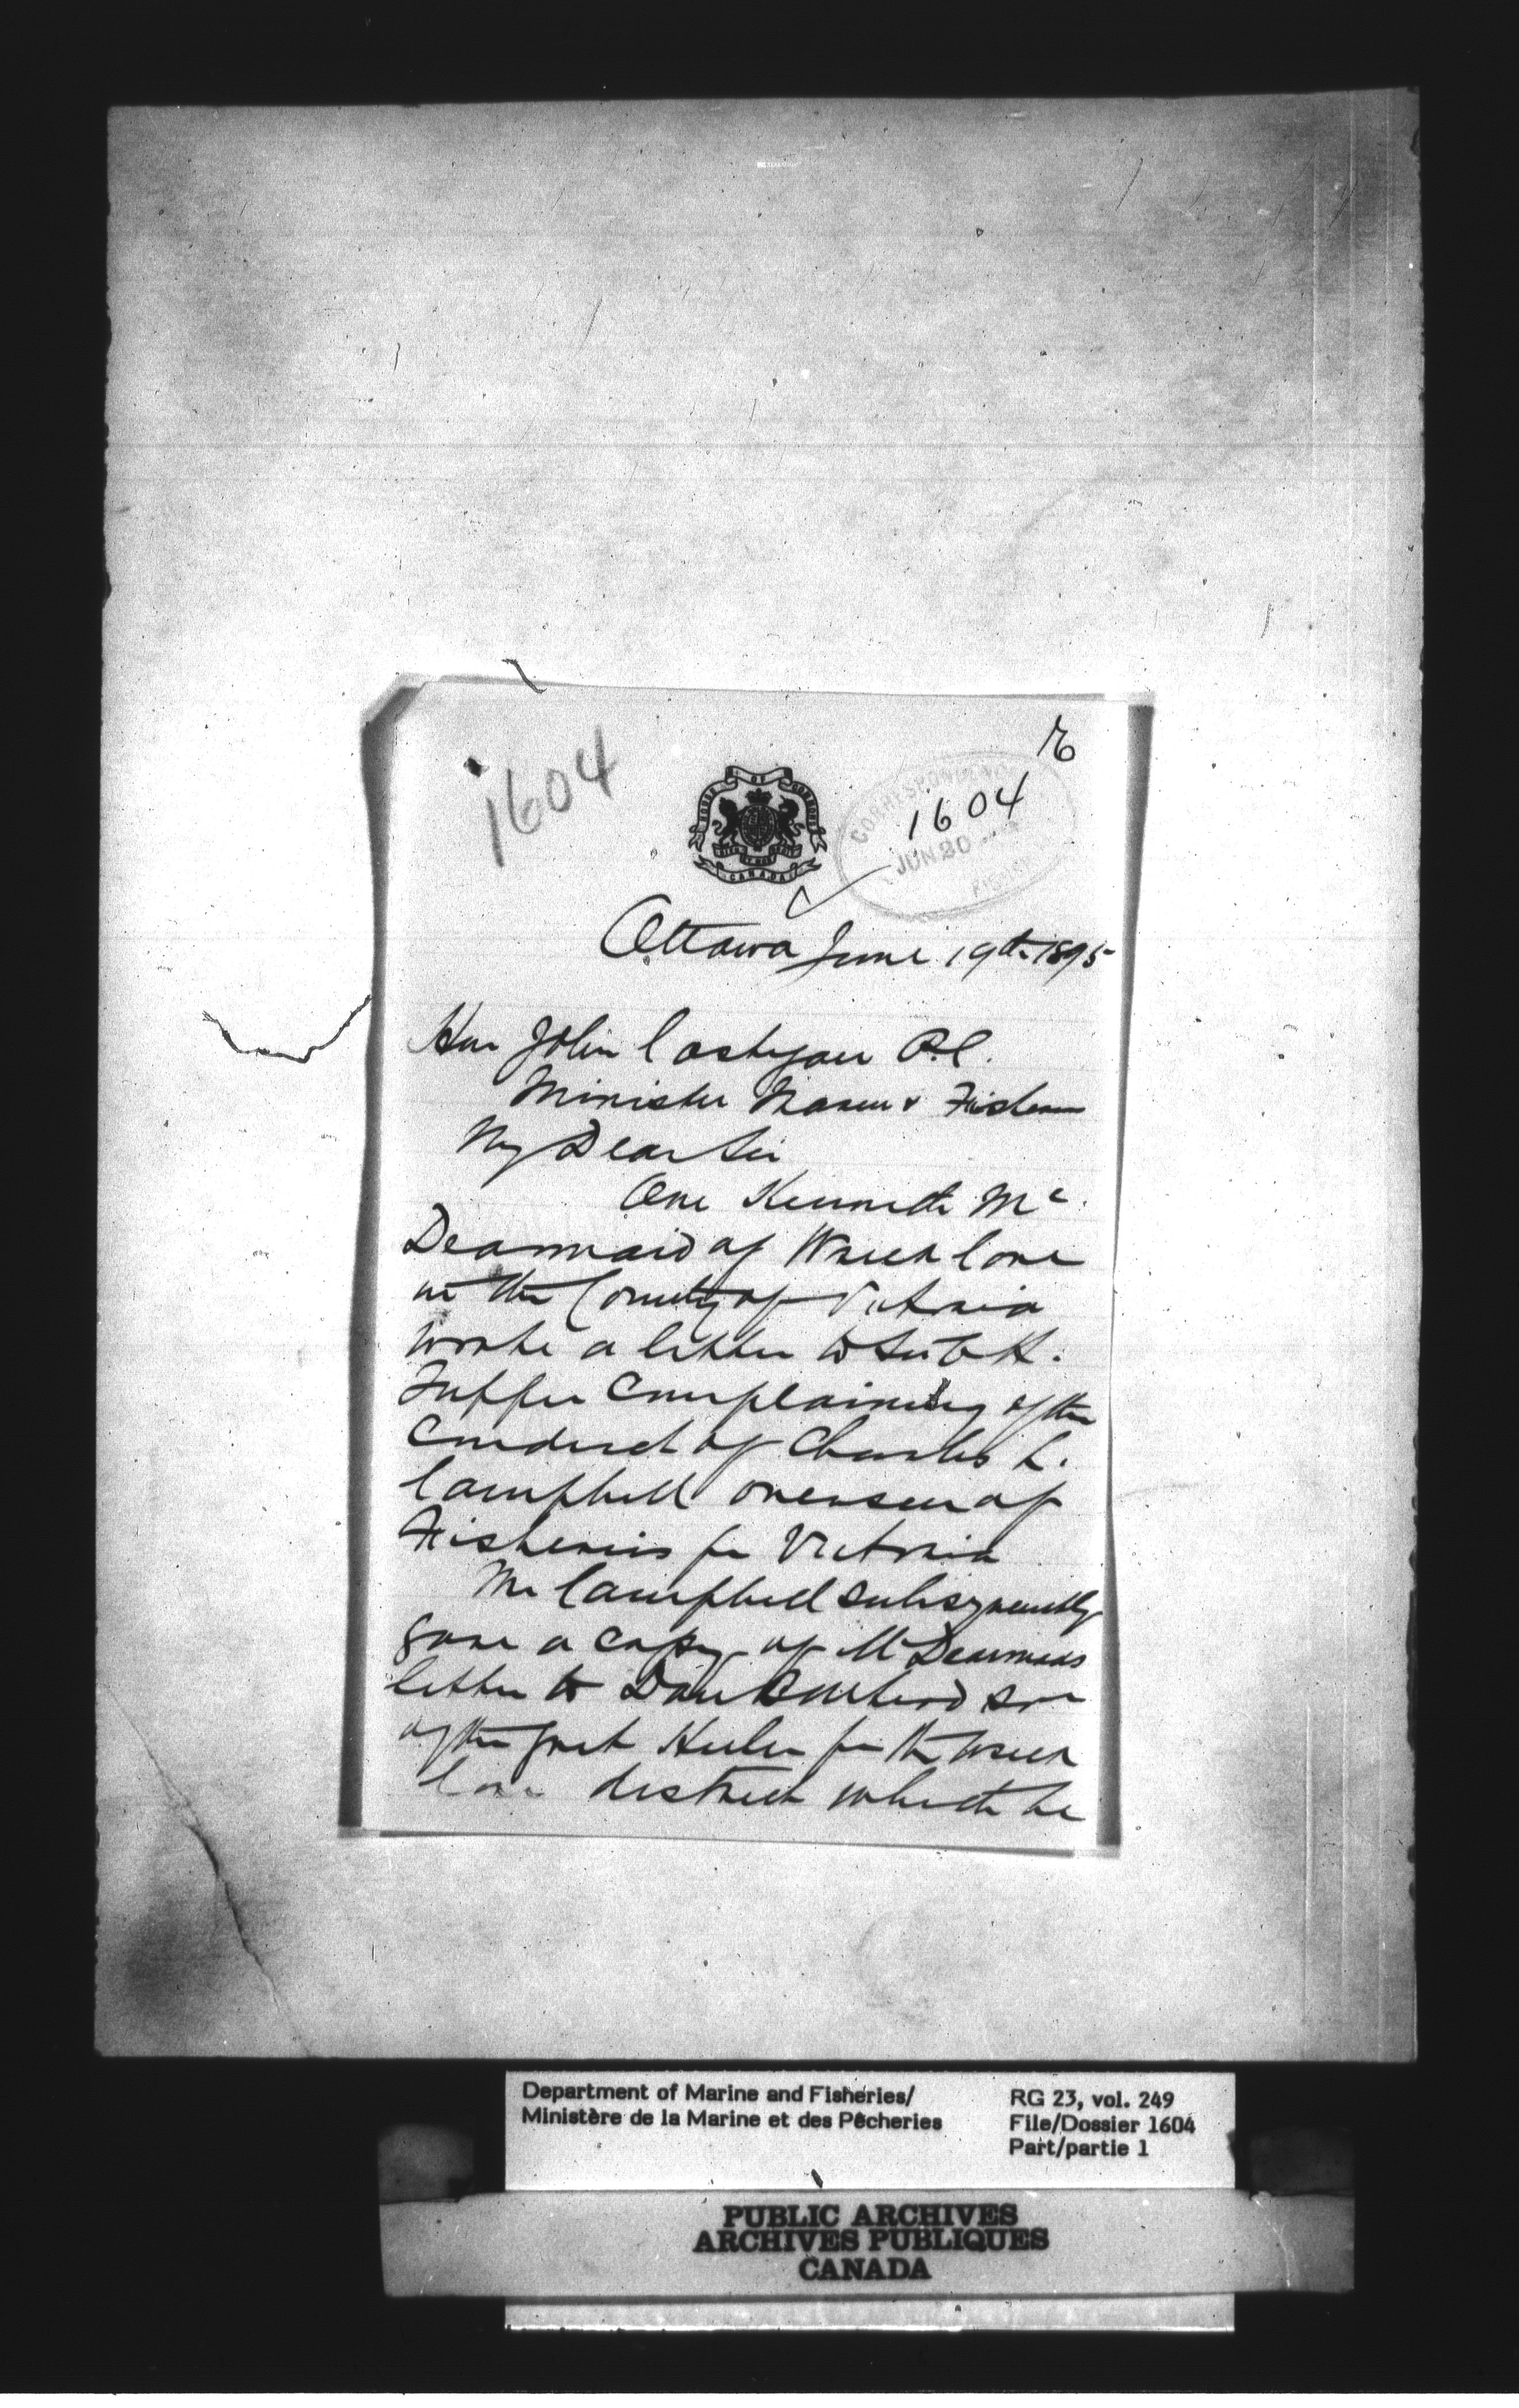 1604
R
HOUSE OF COMMONS
CANADA
CORRESPONDENCE
1604
JUN 20
Ottawa June 19th 1895
Hon John Costigan P.C.
Minister Marine & Fisheries
My Dear Sir
One Kenneth Mc
Dearmaid of Wreck Cove
in the County of Victoria
wrote a letter to Sir C H.
Tupper Complaining of the
Conduct of Charles L.
Campbell overseer of
Fisheries for Victoria
Mr Campbell subsequently
gave a copy of McDearmaids
letter to Dan son
of the Heeler for the Wreck
Cove district which he
Department of Marine and Fisheries/
Ministère de la Marine et des Pêcheries
RG 23, vol. 249
File/Dossier 1604
Part/partie 1
PUBLIC ARCHIVES
ARCHIVES PUBLIQUES
CANADA